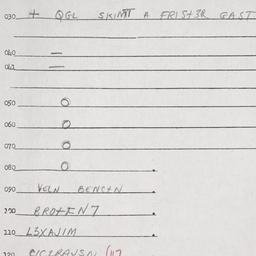 030 + QGL SKIMT A FRIST3R GAST
040 —
041 —
050 O
060 O
070 O
080 O
090 VELN BENCTN
100 BROTEN7
110 L3XAJIM
120